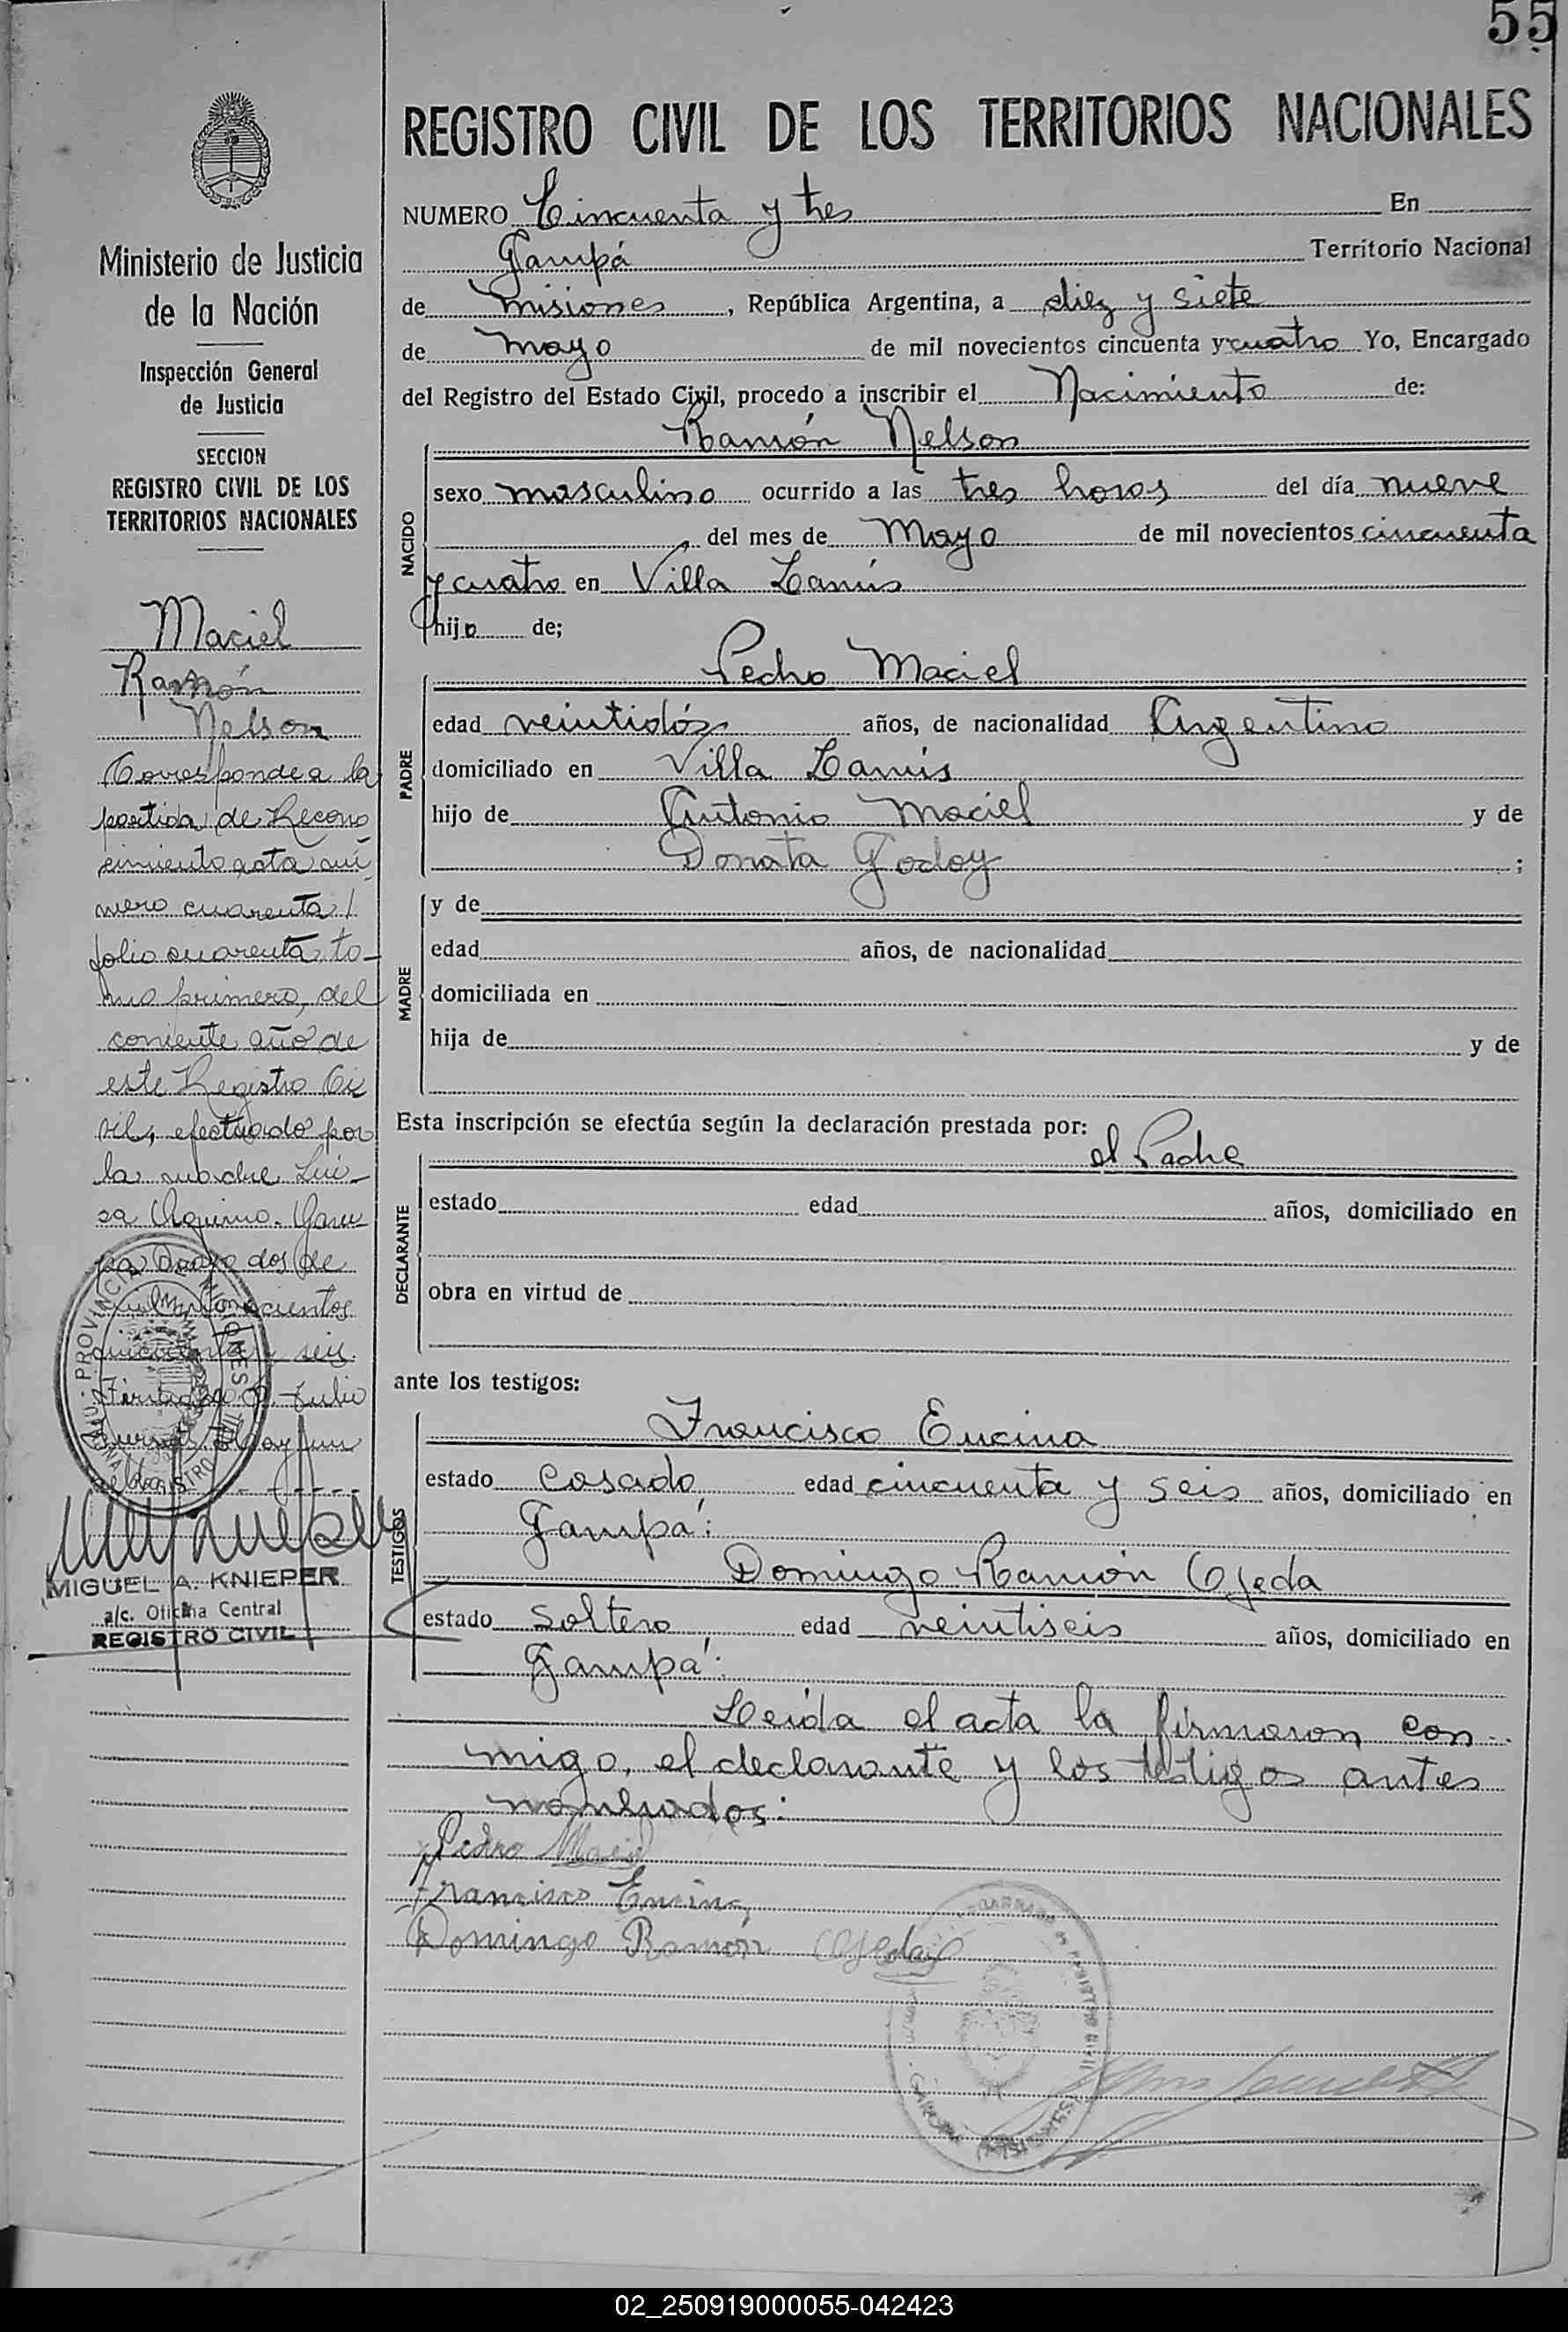 55
REGISTRO CIVIL DE LOS TERRITORIOS NACIONALES
NUMERO Cincuenta y tres En
Garupá Territorio Nacional
de Misiones, República Argentina, a diez y siete
de mayo de mil novecientos cincuenta y cuatro Yo, Encargado
del Registro del Estado Civil, procedo a inscribir el Nacimiento de:
NACIDO
Ramón Nelson
sexo masculino ocurrido a las tres horas del día nueve
del mes de Mayo de mil novecientos cincuenta
y cuatro en Villa Lanús
hijo de;
PADRE
Pedro Maciel
edad veintidós años, de nacionalidad Argentino
domiciliado en Villa Lanús
hijo de Antonio Maciel y de
Donata Godoy ;
MADRE
y de
edad años, de nacionalidad
domiciliada en
hija de y de
Esta inscripción se efectúa según la declaración prestada por:
el Padre
DECLARANTE
estado edad años, domiciliado en
obra en virtud de
ante los testigos:
TESTIGOS
Francisco Encina
estado casado, edad cincuenta y seis años, domiciliado en
Garupá:
Domingo Ramón Ojeda
estado soltero, edad veintiseis años, domiciliado en
Garupá:
Leída el acta la firmaron con-
migo, el declarante y los testigos antes
nombrados:
Pedro Maciel
Francisco Encina
Domingo Ramón Ojeda
Ministerio de Justicia
de la Nación
Inspección General
de Justicia
SECCION
REGISTRO CIVIL DE LOS
TERRITORIOS NACIONALES
Maciel
Ramón
Nelson
Corresponde a la
partida de Recono
cimiento acta nú
mero cuarenta /
folio cuarenta to-
mo primero, del
corriente año de
este Registro Ci
vil, efectuado por
la madre Lui-
sa Aquino. Garu-
pá Mayo dos de
mil novecientos
cincuenta y seis.
MIGUEL A. KNIEPER
a/c. Oficina Central
REGISTRO CIVIL
02_250919000055-042423